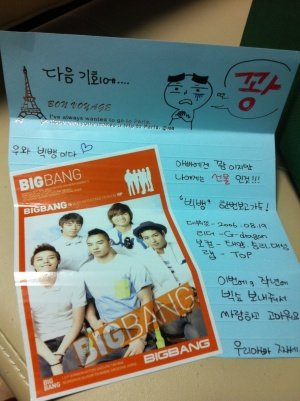 다음 기회에....
꽝
BON VOYAGE
I've always wanted to go to Paris.
우와 빅뱅이다
아빠에겐 꽝이지만
나에게는 선물 인걸!!!
"빅뱅" 한번보고가동!
데뷔일 - 2006.08.19
리더 - G-dragon
보컬 - 태양, 승리, 대성
랩 - TOP
보내주셔서
사랑하고 고마워요
BIGBANG
BIGBANG
BIGBANG
BIG BANG
BIGBANG